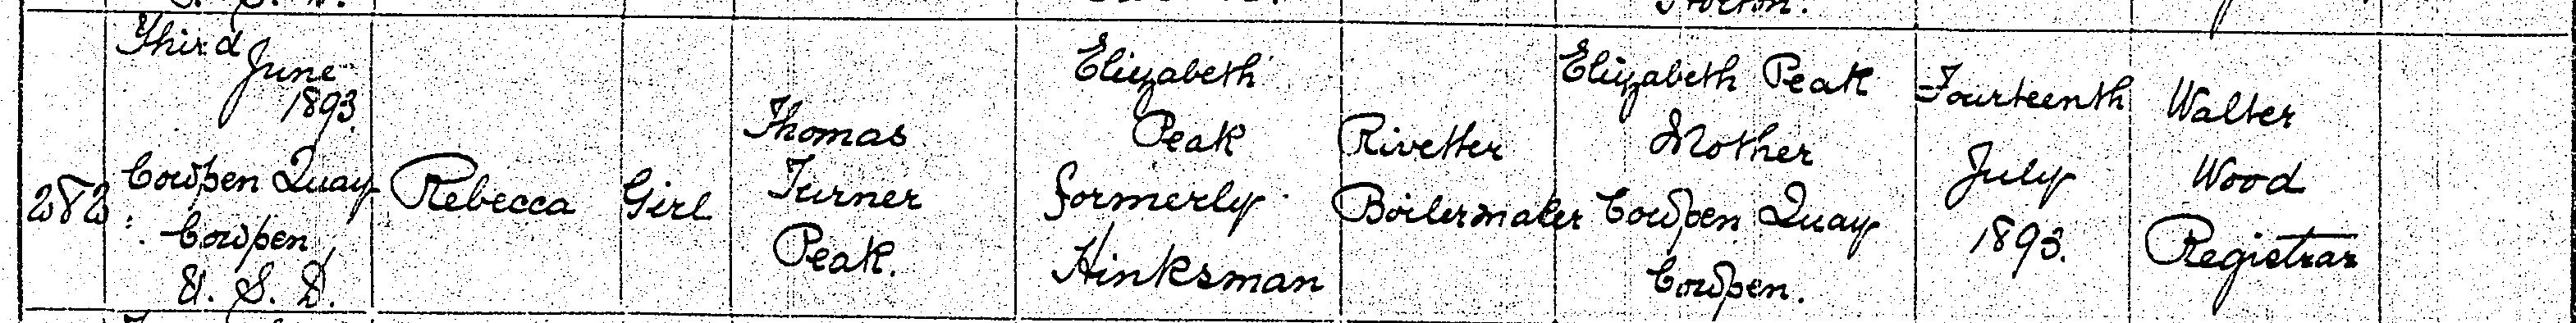 282
Third
June
1893
Cowpen Quay
Cowpen
U. S. D.
Rebecca
Girl
Thomas
Turner
Peak.
Elizabeth
Peak
formerly
Hinksman
Rivetter
Boilermaker
Elizabeth Peak
Mother
Cowpen Quay
Cowpen.
Fourteenth
July
1893.
Walter
Wood
Registrar